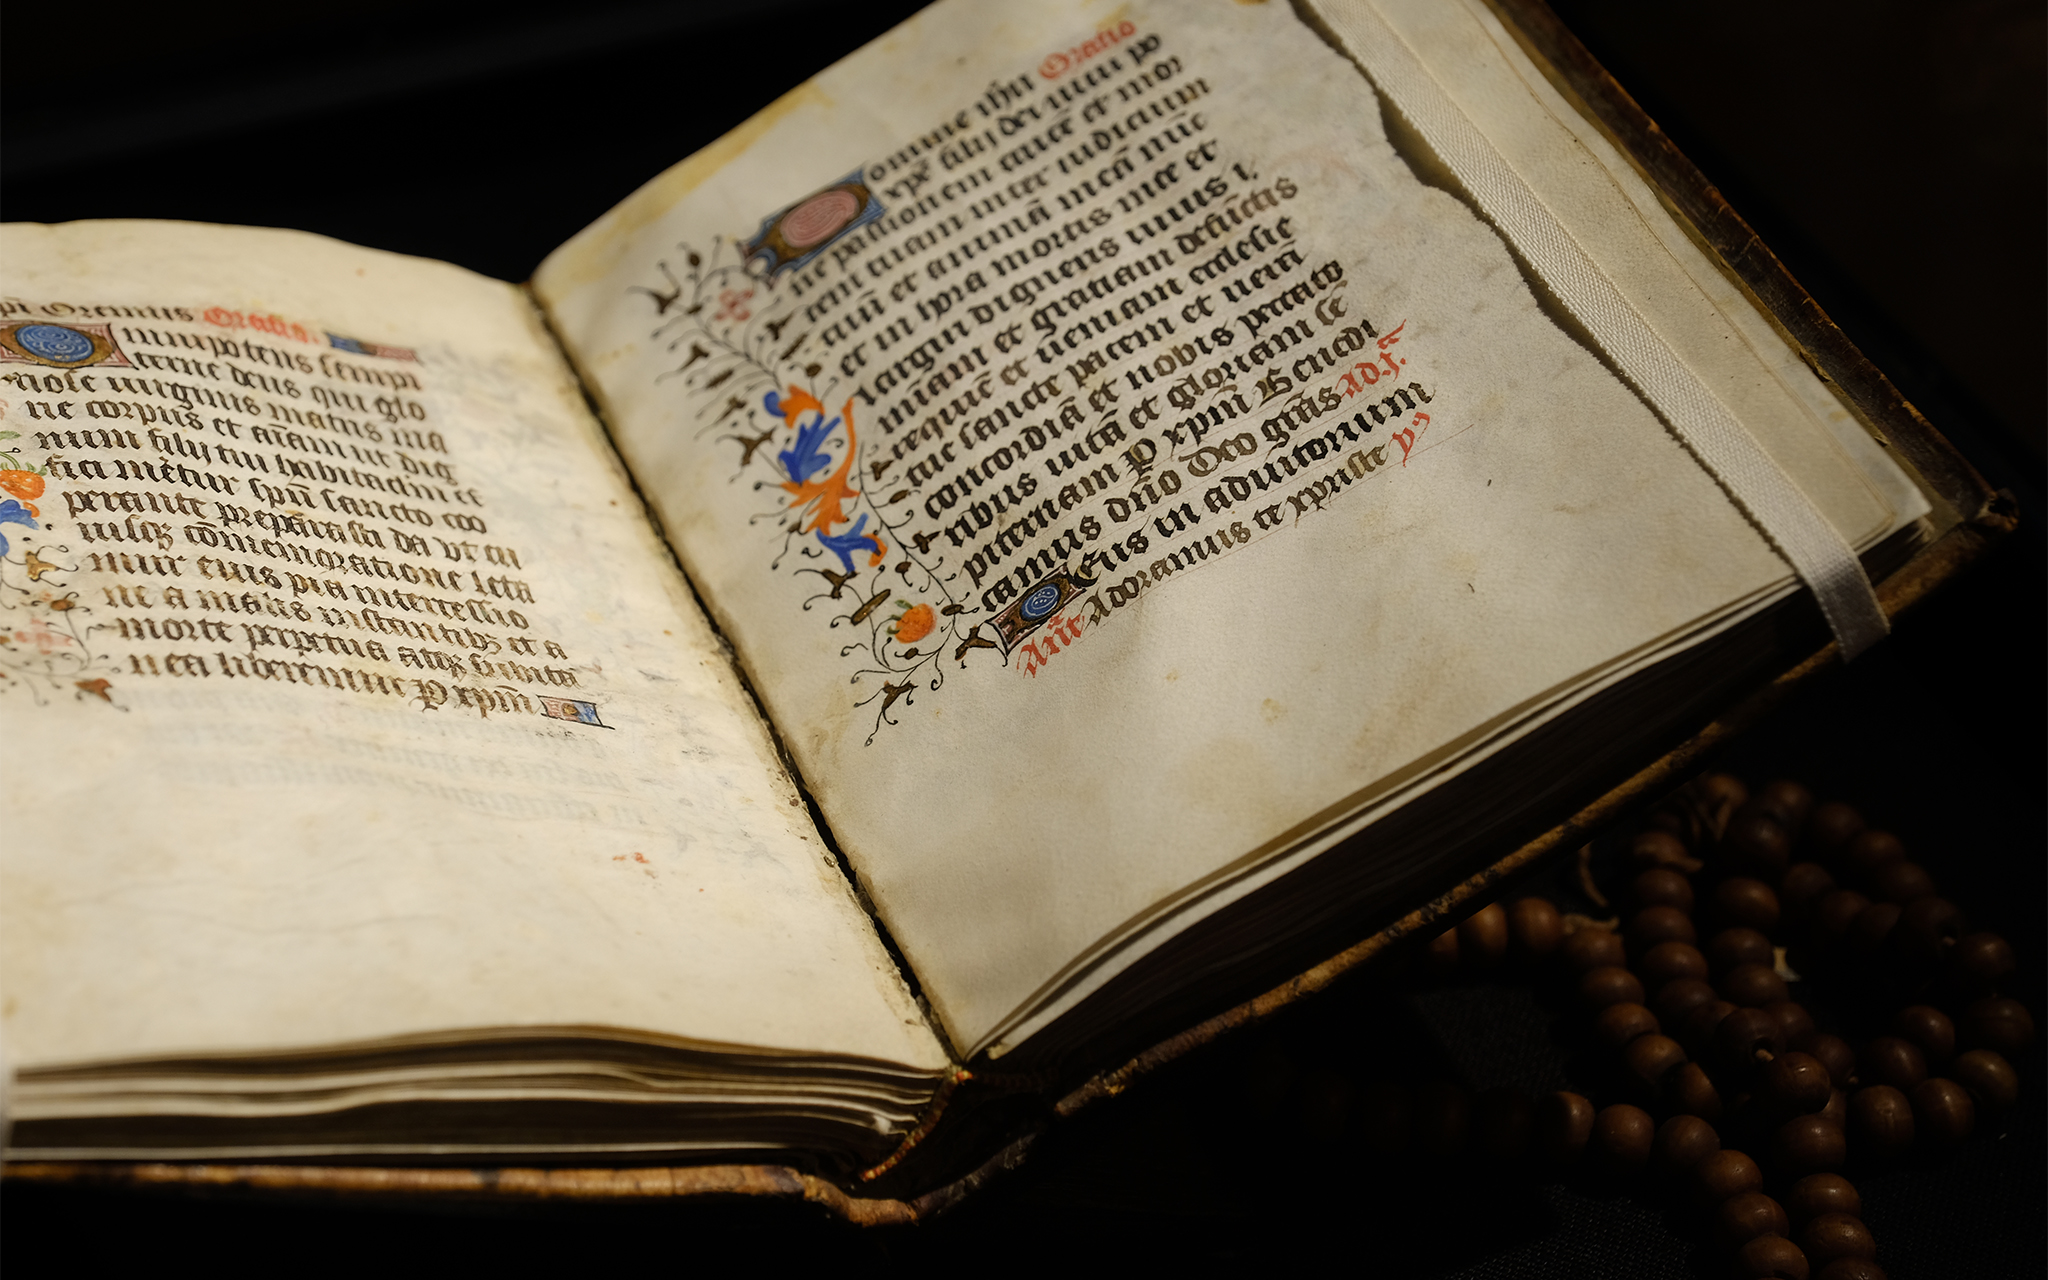 pi Oremus Oratio.
mnipotens sempi
terne deus qui glo
riose uirginis matris ma
rie corpus et aīam ut dig
num filij tui habitaclm ef
fici mēretur spū sancto coo
perante preparasti da vt cui
iusqꝫ cōmemoratione leta
mur eius pia intercessio
ne a malis instantibꝫ et a
morte perpetua atqꝫ subita
nea liberemur P xpm̄
omine ihū Oratio
xp̄e filij dei uiui po
ne passionem crucē et mor
tem tuam inter iudicium
tuū et animā meā nūc
et in hora mortis mee et
largiri digneris uiuis ī
miāam et gratiam defūctis
requiē et ueniam ecclesie
tue sancte pacem et uerā
concordiā et nobis peccato
ribus uitā et gloriam sē
piternam P xpm̄ Benedi
camus dño Deo grās Ad.
Eus in adiutorium
Añt Adoramus te xpriste ps